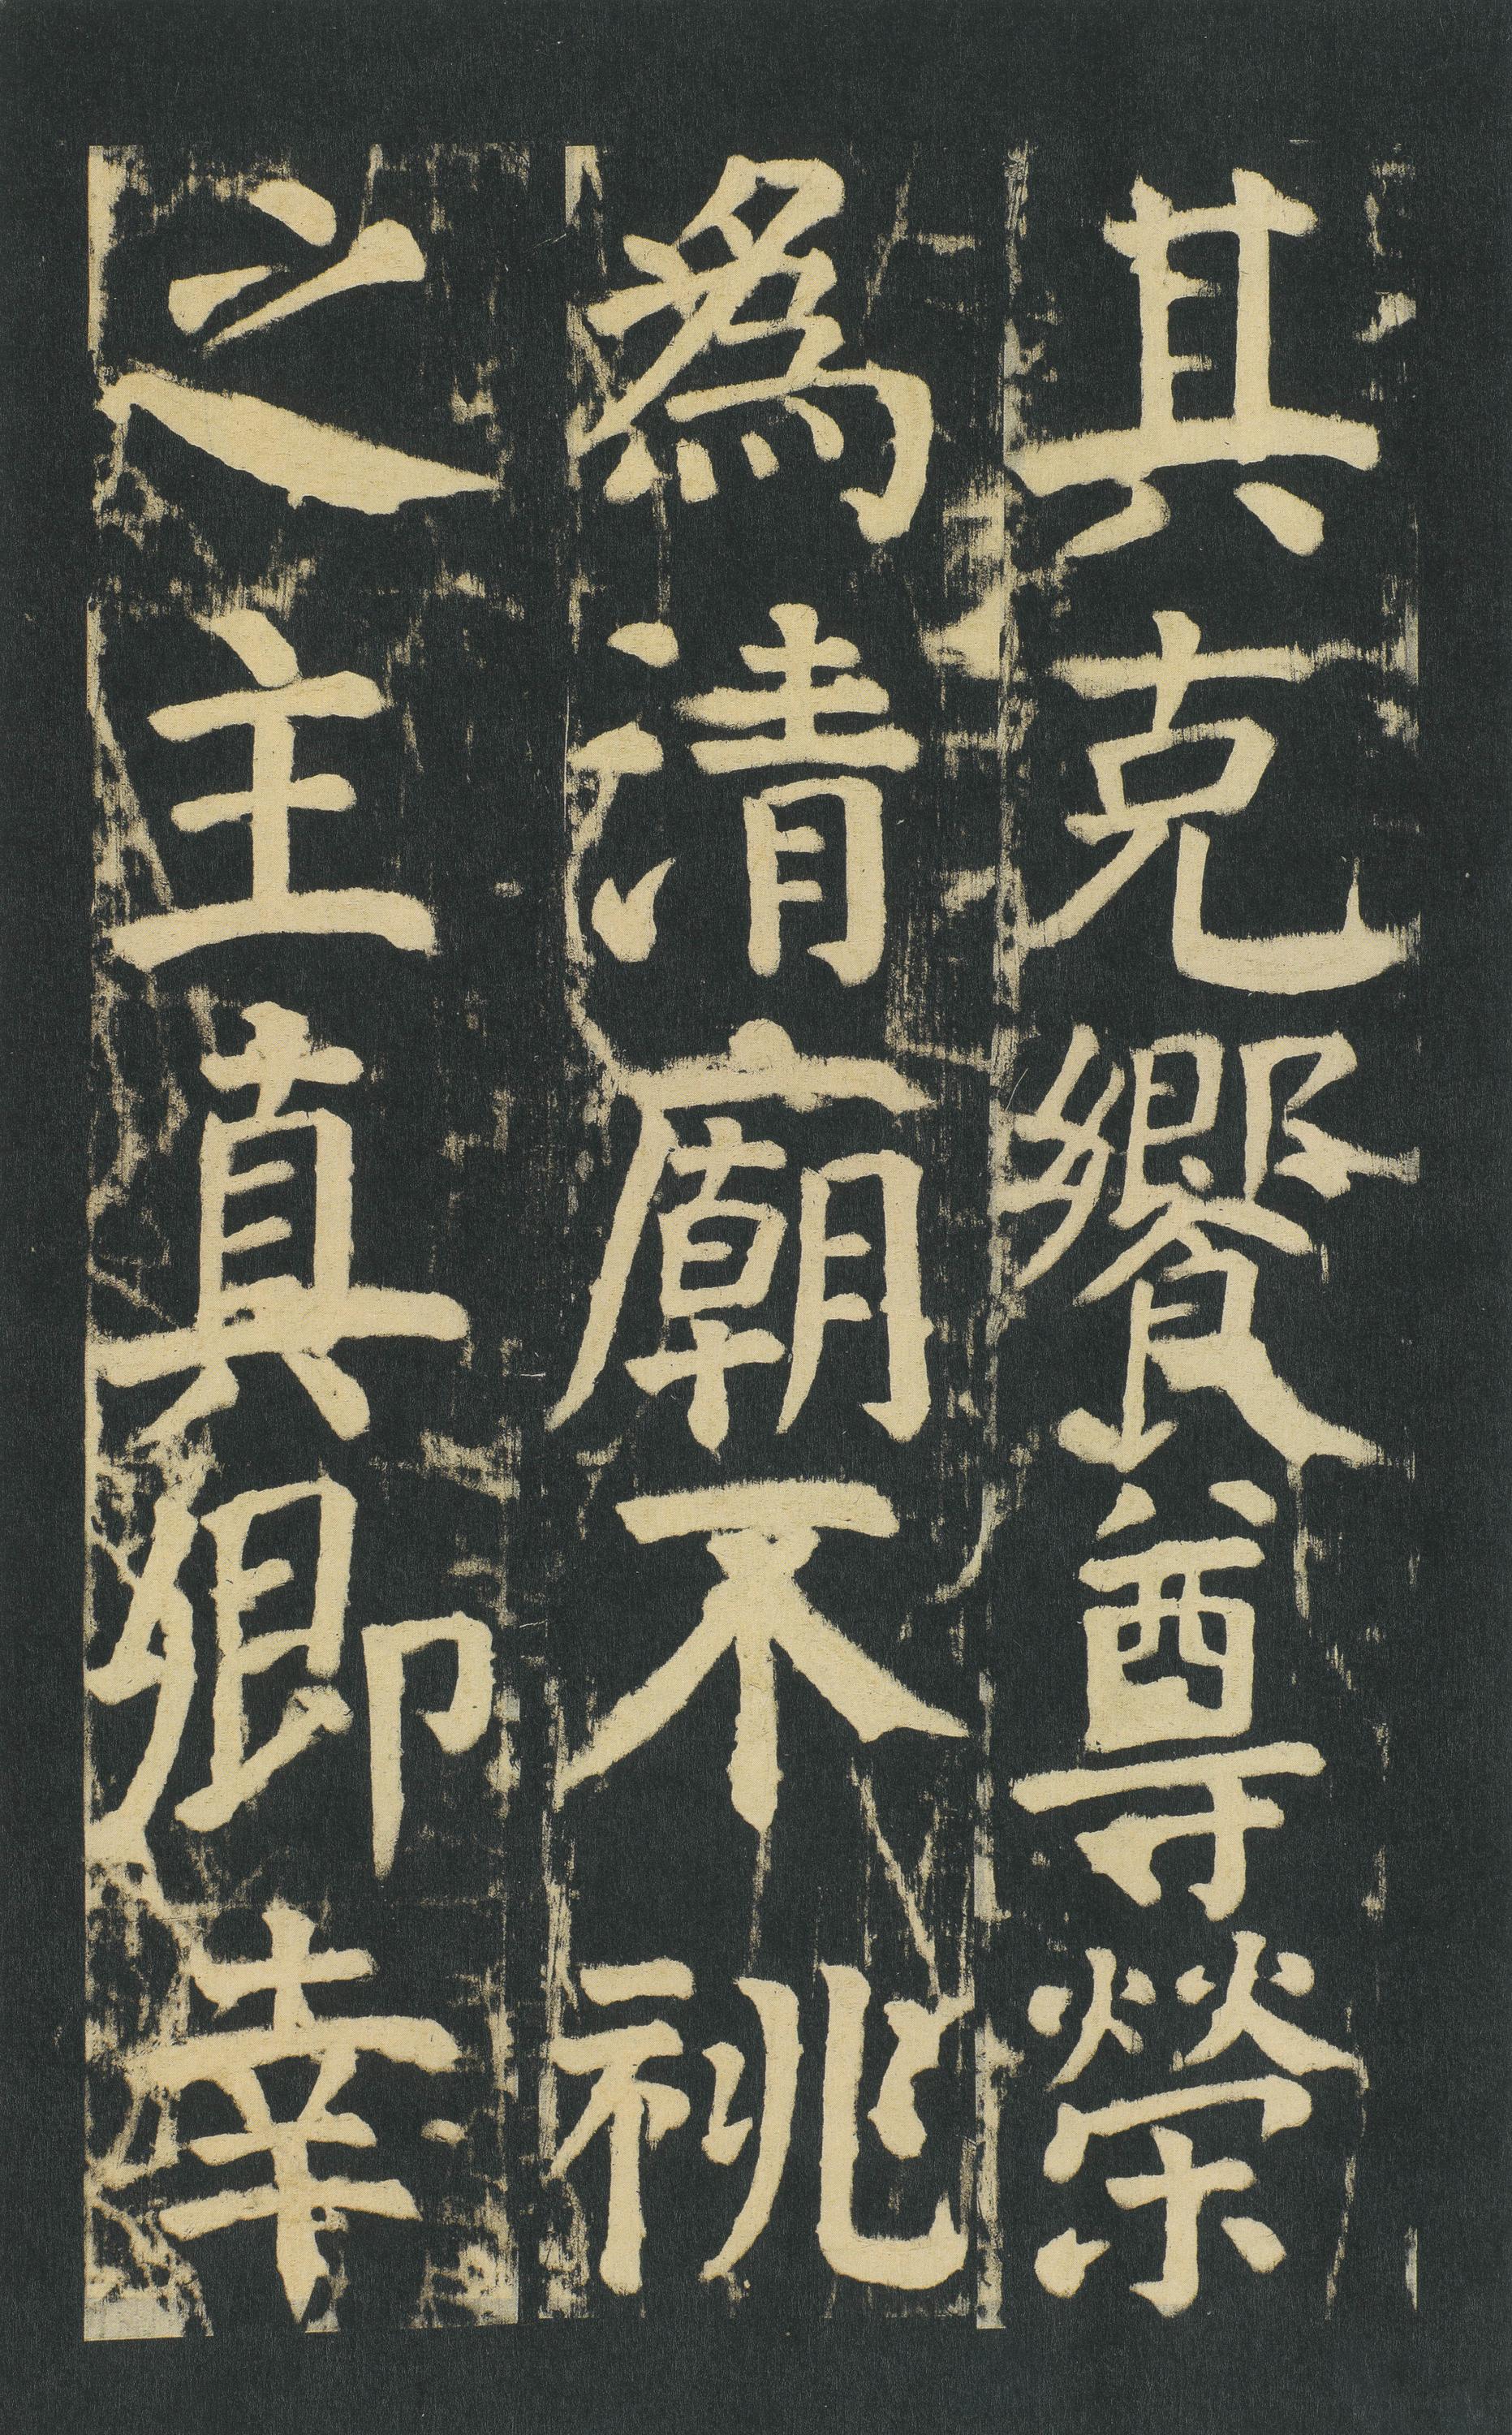 其克饗尊榮
為清廟不祧
之主真卿幸